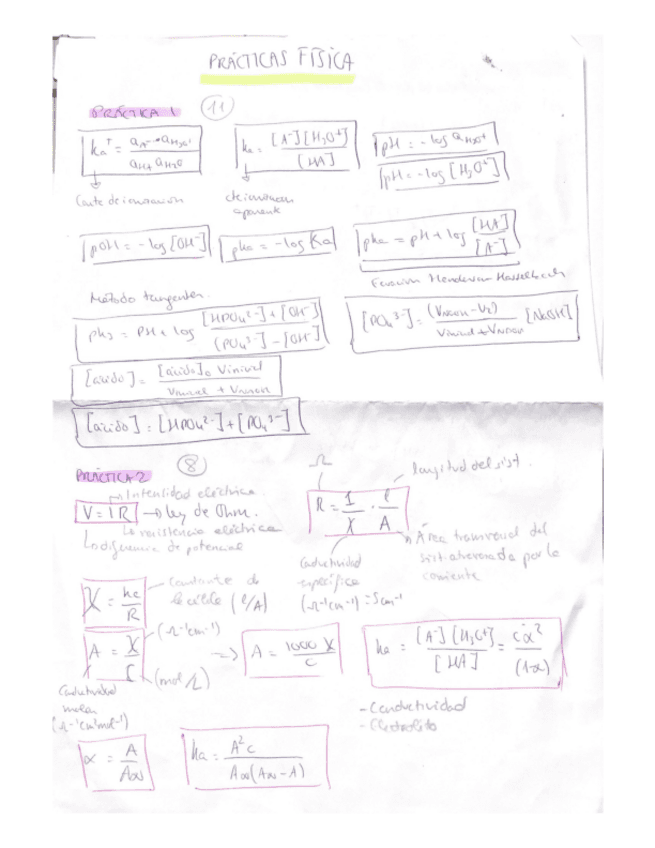 PRÁCTICAS FÍSICA
PRÁCTICA 1 (11)
Ka^T = a_A⁻ · a_H3O⁺ / a_HA a_H2O
Ka = [A⁻][H3O⁺] / [HA]
pH = -log a_H3O⁺
pH = -log [H3O⁺]
Cante de ionización
cte ionización aparente
pOH = -log [OH⁻]
pKa = -log Ka
pKa = pH + log [HA] / [A⁻]
Ecuación Henderson Hasselbach
Método tangentes.
pK3 = pH + log [HPO4²⁻] + [OH⁻] / [PO4³⁻] - [OH⁻]
[PO4³⁻] = (VNaOH - V2) / Vinicial + VNaOH [NaOH]
[ácido] = [ácido]0 Vinicial / Vinicial + VNaOH
[ácido] = [HPO4²⁻] + [PO4³⁻]
PRÁCTICA 2 (8)
Intensidad eléctrica.
V = I R → Ley de Ohm.
↳ resistencia eléctrica
↳ diferencia de potencial
Ω
longitud del sist.
R = 1/χ · l/A
Área transversal del
sist atravesada por la
corriente
Conductividad
específica
(Ω⁻¹cm⁻¹) = S cm⁻¹
χ = kc / R
constante de
la célula (l/A)
Λ = χ / C
(Ω⁻¹cm⁻¹)
(mol/L)
⇒ Λ = 1000 χ / C
Conductividad
molar
(Ω⁻¹cm²mol⁻¹)
Ka = [A⁻][H3O⁺] / [HA] = c α² / (1-α)
- Conductividad
- Electrolito
α = Λ / Λ∞
Ka = Λ² c / Λ∞(Λ∞ - Λ)